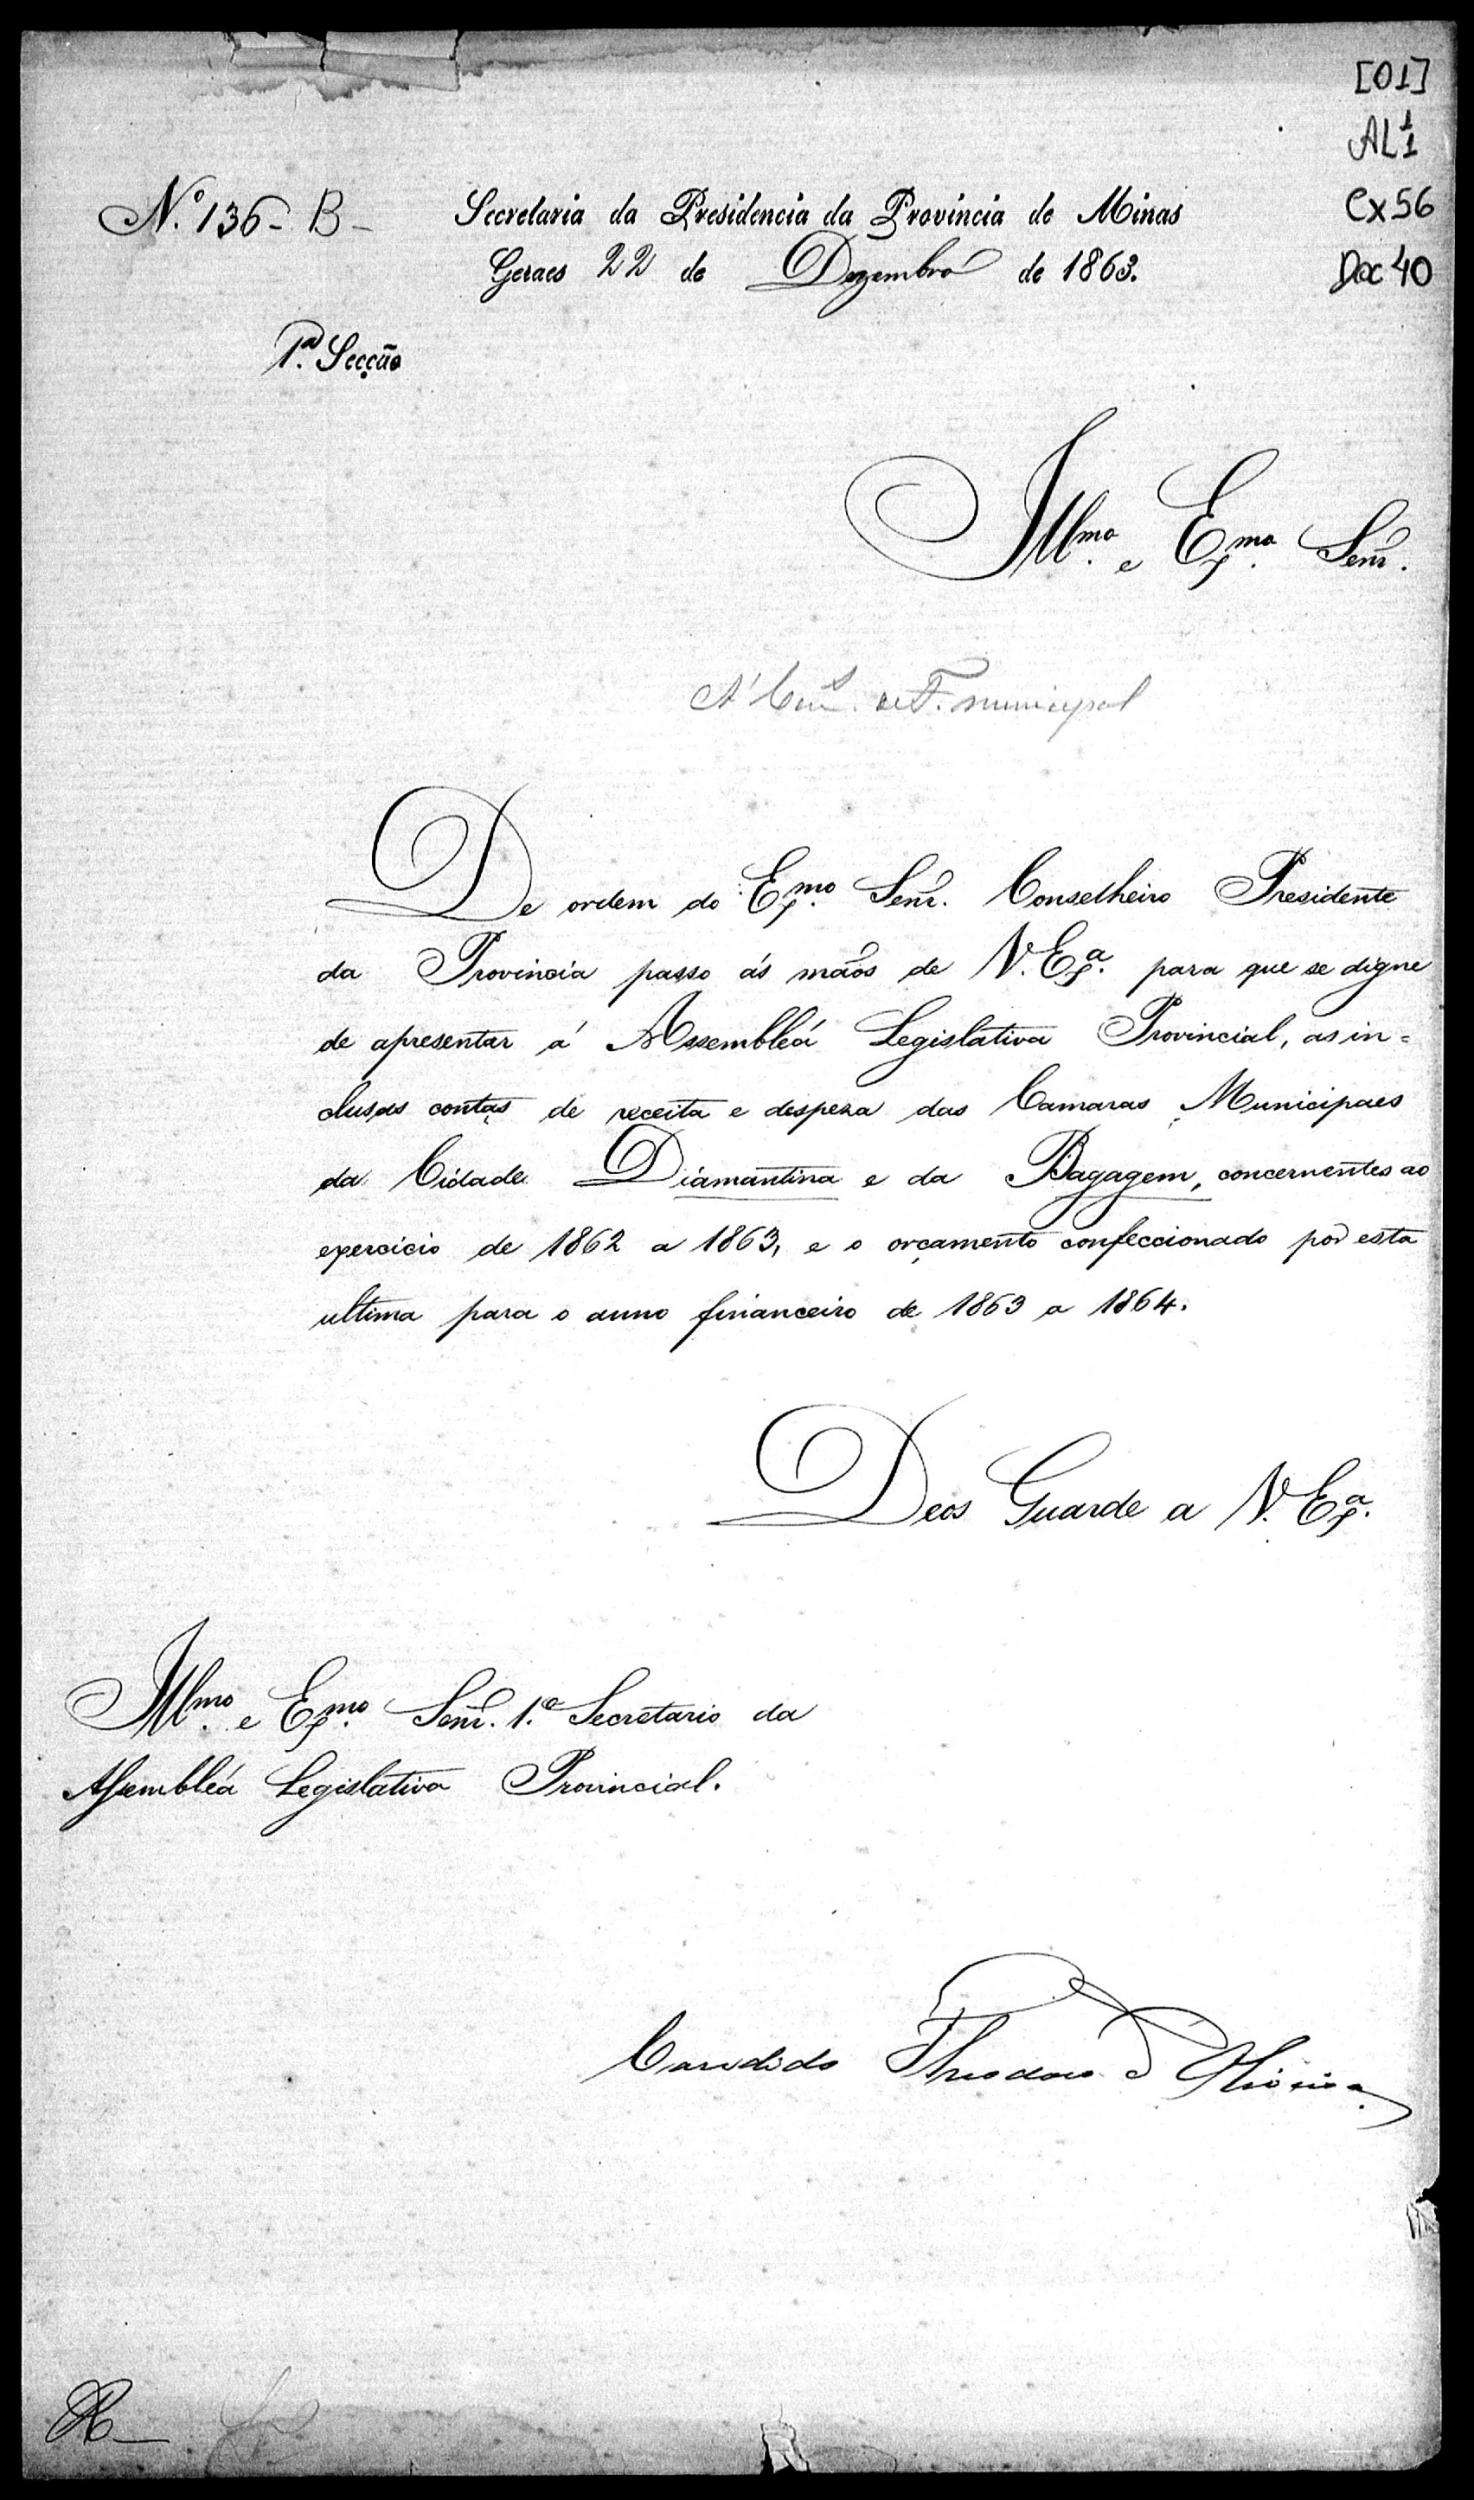 [01]
AL 1 1
Cx 56
Doc 40
Nº 136 - B -
Secretaria da Presidencia da Provincia de Minas
Geraes 22 de Dezembro de 1863.
1ª Secção
Illmo. e Exmo. Senr.
A' de F. municipal
De ordem do Exmo. Senr. Conselheiro Presidente
da Provincia passo ás mãos de V. Exª. para que se digne
de apresentar á Assembleá Legislativa Provincial, as in=
clusas contas de receita e despeza das Camaras Municipaes
da Cidade Diamantina e da Bagagem, concernentes ao
exercicio de 1862 a 1863, e o orçamento confeccionado por esta
ultima para o anno financeiro de 1863 a 1864.
Deos Guarde a V. Exª.
Illmo. e Exmo. Senr. 1.º Secretario da
Assembleá Legislativa Provincial.
Candido Theodoro d'Oliveira